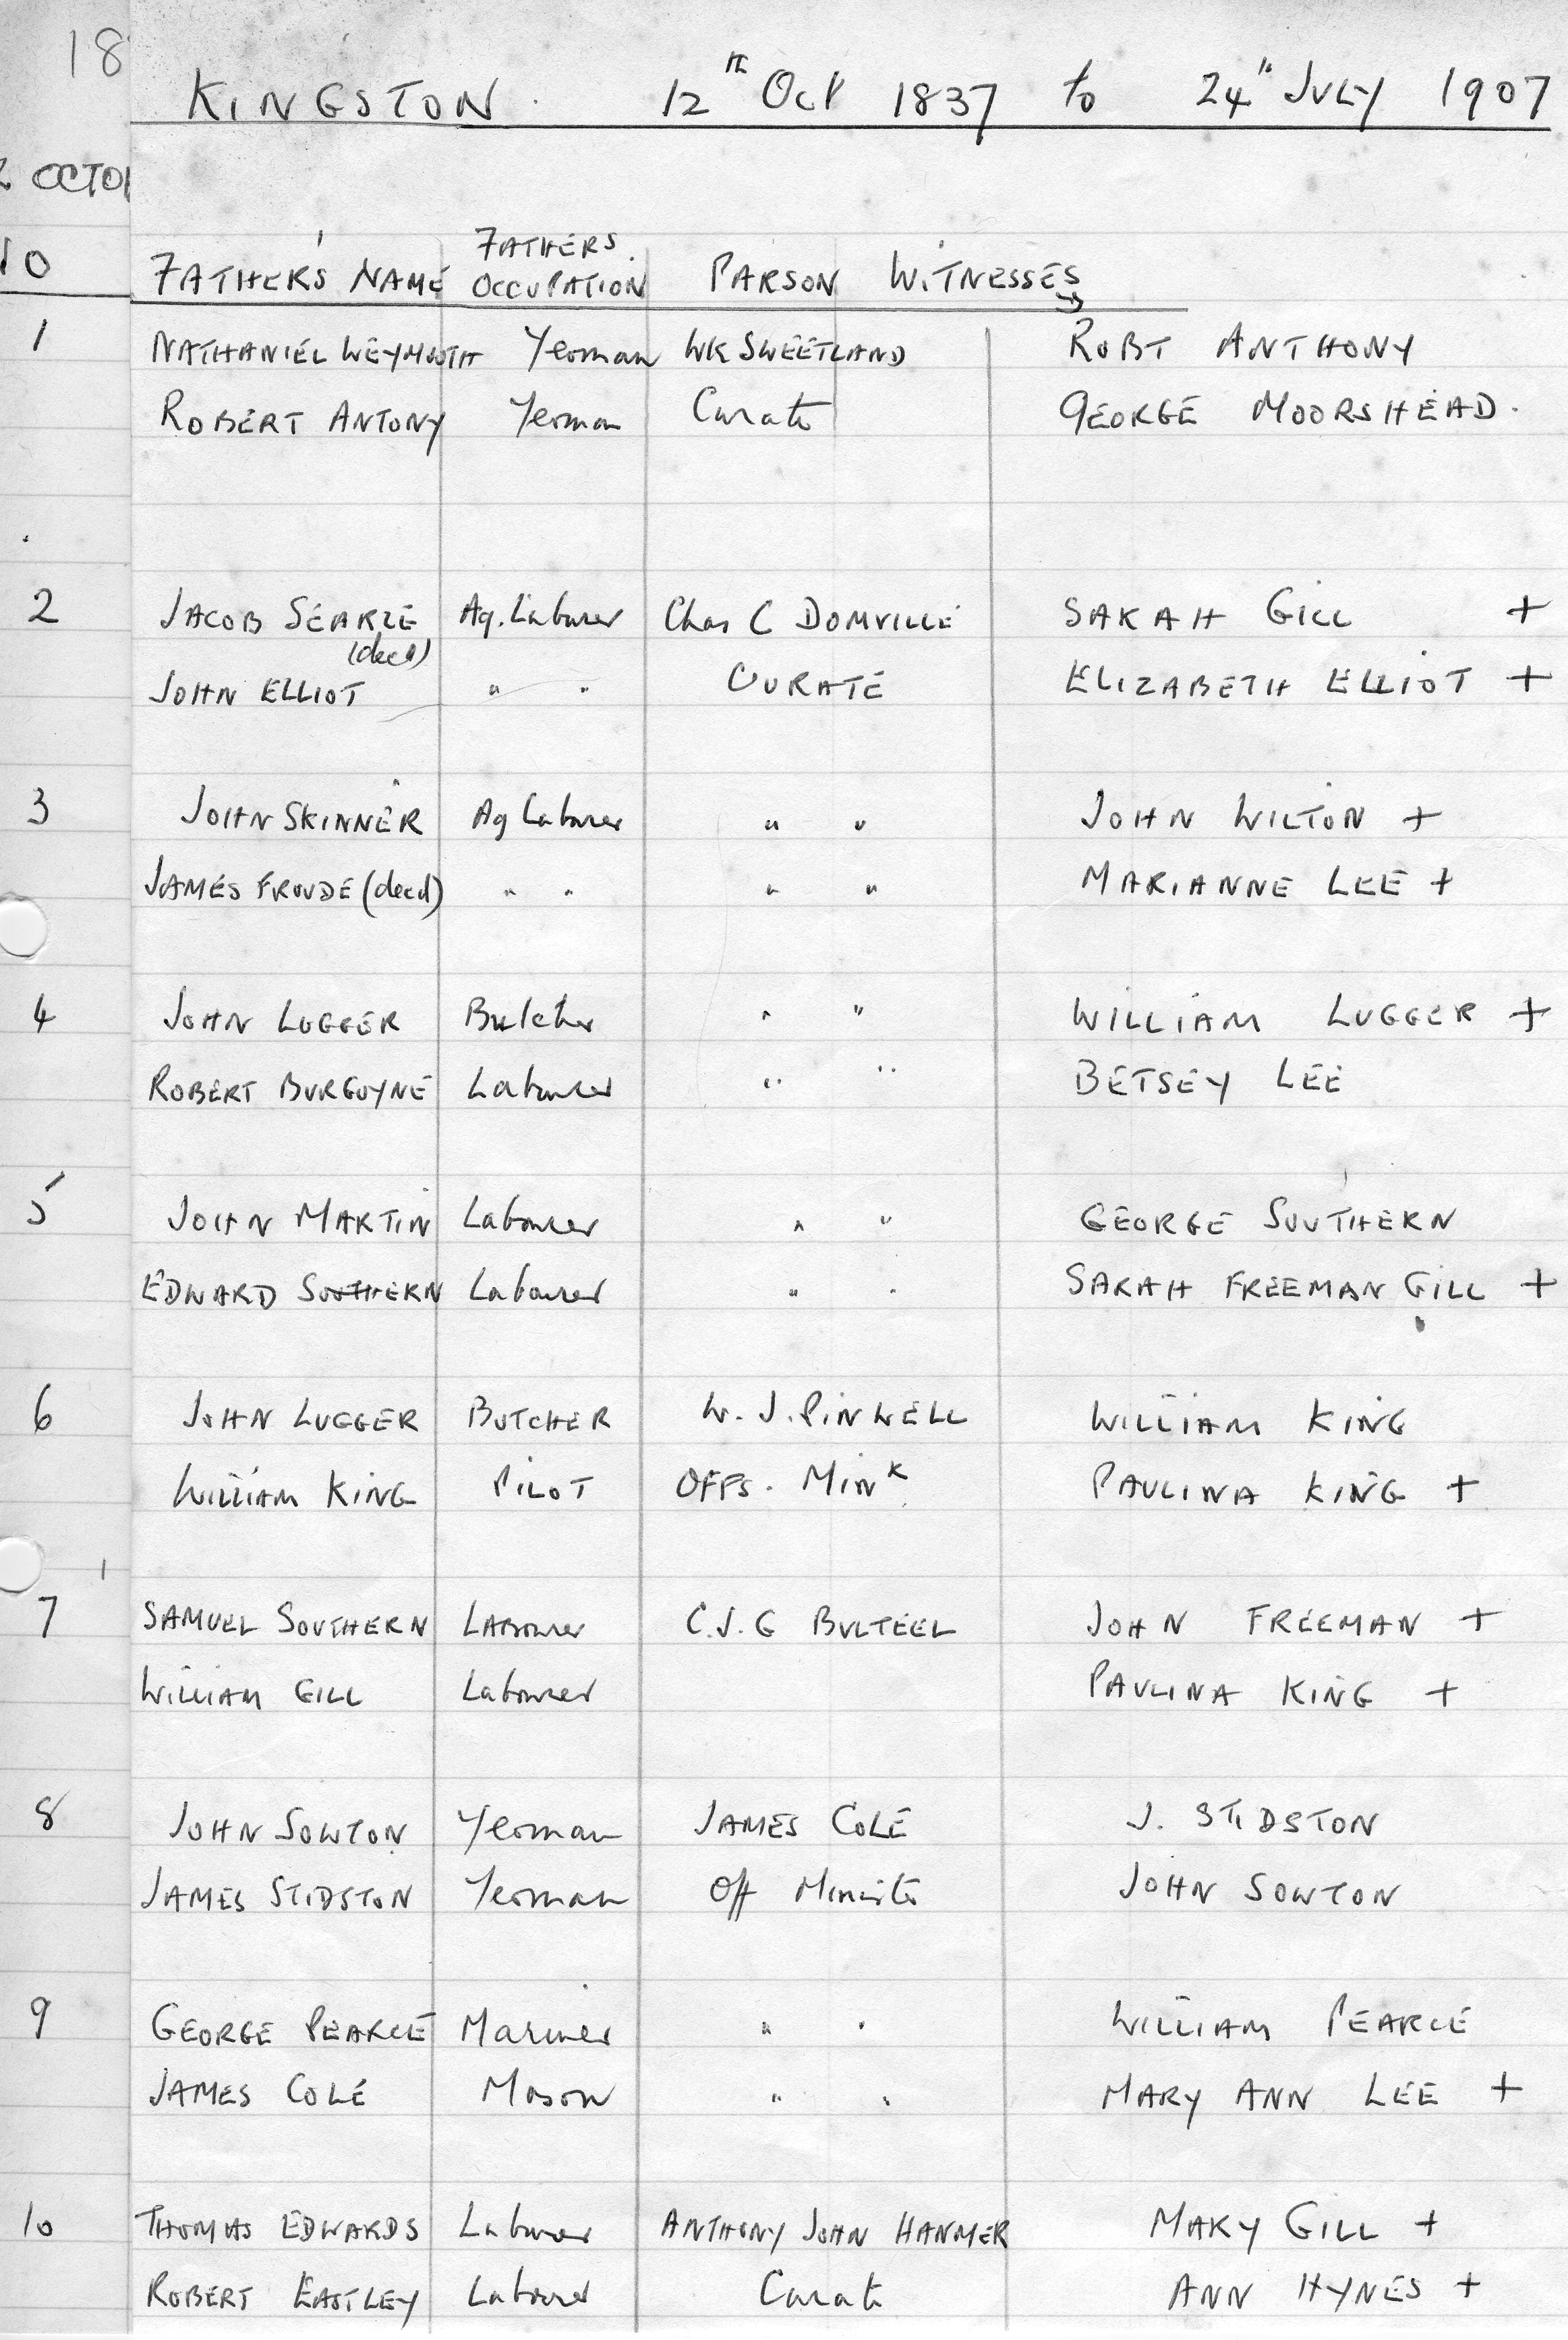 18
KINGSTON. 12th Oct 1837 to 24" JULY 1907
OCTO
FATHERS
NO FATHER'S NAME OCCUPATION PARSON WITNESSES
1 NATHANIEL WEYMOUTH Yeoman WK SWEETLAND ROBT ANTHONY
ROBERT ANTONY Yeoman Curate GEORGE MOORSHEAD.
2 JACOB SEARLE Ag. Labourer Chas C DOMVILLE SARAH GILL +
(decd)
JOHN ELLIOT " " CURATE ELIZABETH ELLIOT +
3 JOHN SKINNER Ag Labourer " " JOHN WILTON +
JAMES FROUDE (decd) " " " " MARIANNE LEE +
4 JOHN LUGGER Butcher " " WILLIAM LUGGER +
ROBERT BURGOYNE Labourer " " BETSEY LEE
5 JOHN MARTIN Labourer " " GEORGE SOUTHERN
EDWARD SOUTHERN Labourer " " SARAH FREEMAN GILL +
6 JOHN LUGGER BUTCHER W. J. PINWELL WILLIAM KING
WILLIAM KING PILOT OFFS. MIN PAULINA KING +
7 SAMUEL SOUTHERN LABourer C.J.G BULTEEL JOHN FREEMAN +
WILLIAM GILL Labourer PAULINA KING +
8 JOHN SOWTON Yeoman JAMES COLE J. STIDSTON
JAMES STIDSTON Yeoman Off Ministe JOHN SOWTON
9 GEORGE PEARCE Mariner " " WILLIAM PEARCE
JAMES COLE Mason " " MARY ANN LEE +
10 THOMAS EDWARDS Labourer ANTHONY JOHN HANMER MARY GILL +
ROBERT EASTLEY Labourer Curate ANN HYNES +